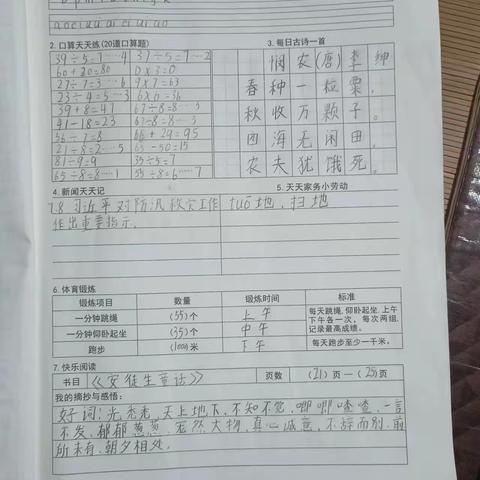 a o e i u ü ai ei ui ao
2. 口算天天练(20道口算题)
39÷5=7……4 37÷5=7…2
60+20=80 0×3=0
27÷7=3…6 9×7=63
23÷4=5…3 6×6=36
39+8=47 67÷8=8…3
41-18=23 67÷8=8…3
56÷7=8 66+29=95
21÷8=2…5 65-50=15
81÷9=9 35÷5=7
65÷8=8……1 55÷8=6……7
3. 每日古诗一首
悯农(唐)李绅
春种一粒粟,
秋收万颗子。
四海无闲田,
农夫犹饿死。
4. 新闻天天记
7.8 习近平对防汛救灾工作
作出重要指示。
5. 天天家务小劳动
tuō地、扫地
6. 体育锻炼
锻炼项目 数量 锻炼时间 标准
一分钟跳绳 (55)个 上午
一分钟仰卧起坐 (35)个 中午
跑步 (1000)米 下午
每天跳绳、仰卧起坐,上午
下午各一次,每次两组,
记录最高成绩。
每天跑步至少一千米。
7. 快乐阅读
书目 《安徒生童话》 页数 (21)页—(25)页
我的摘抄与感悟:
好词:光秃秃、天上地下、不知不觉、唧唧喳喳、一言
不发、郁郁葱葱、庞然大物、真心诚意、不辞而别、前
所未有、朝夕相处。